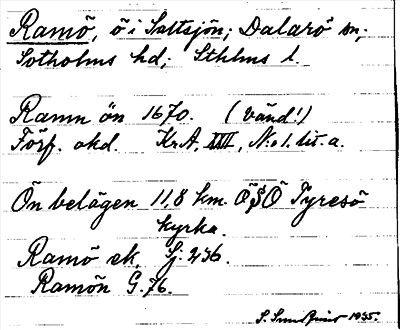 Ramö, ö i Saltsjön; Dalarö sn;
Sotholms hd; Sthlms l.
Ramn ön 1670. (vänd!)
Förf. okd. Kr.A. XXIII, N:o 1. lit. a.
Ön belägen 11,8 km. ÖSÖ Tyresö
kyrka.
Ramö ek Sj. 236.
Ramön G. 76.
1935.